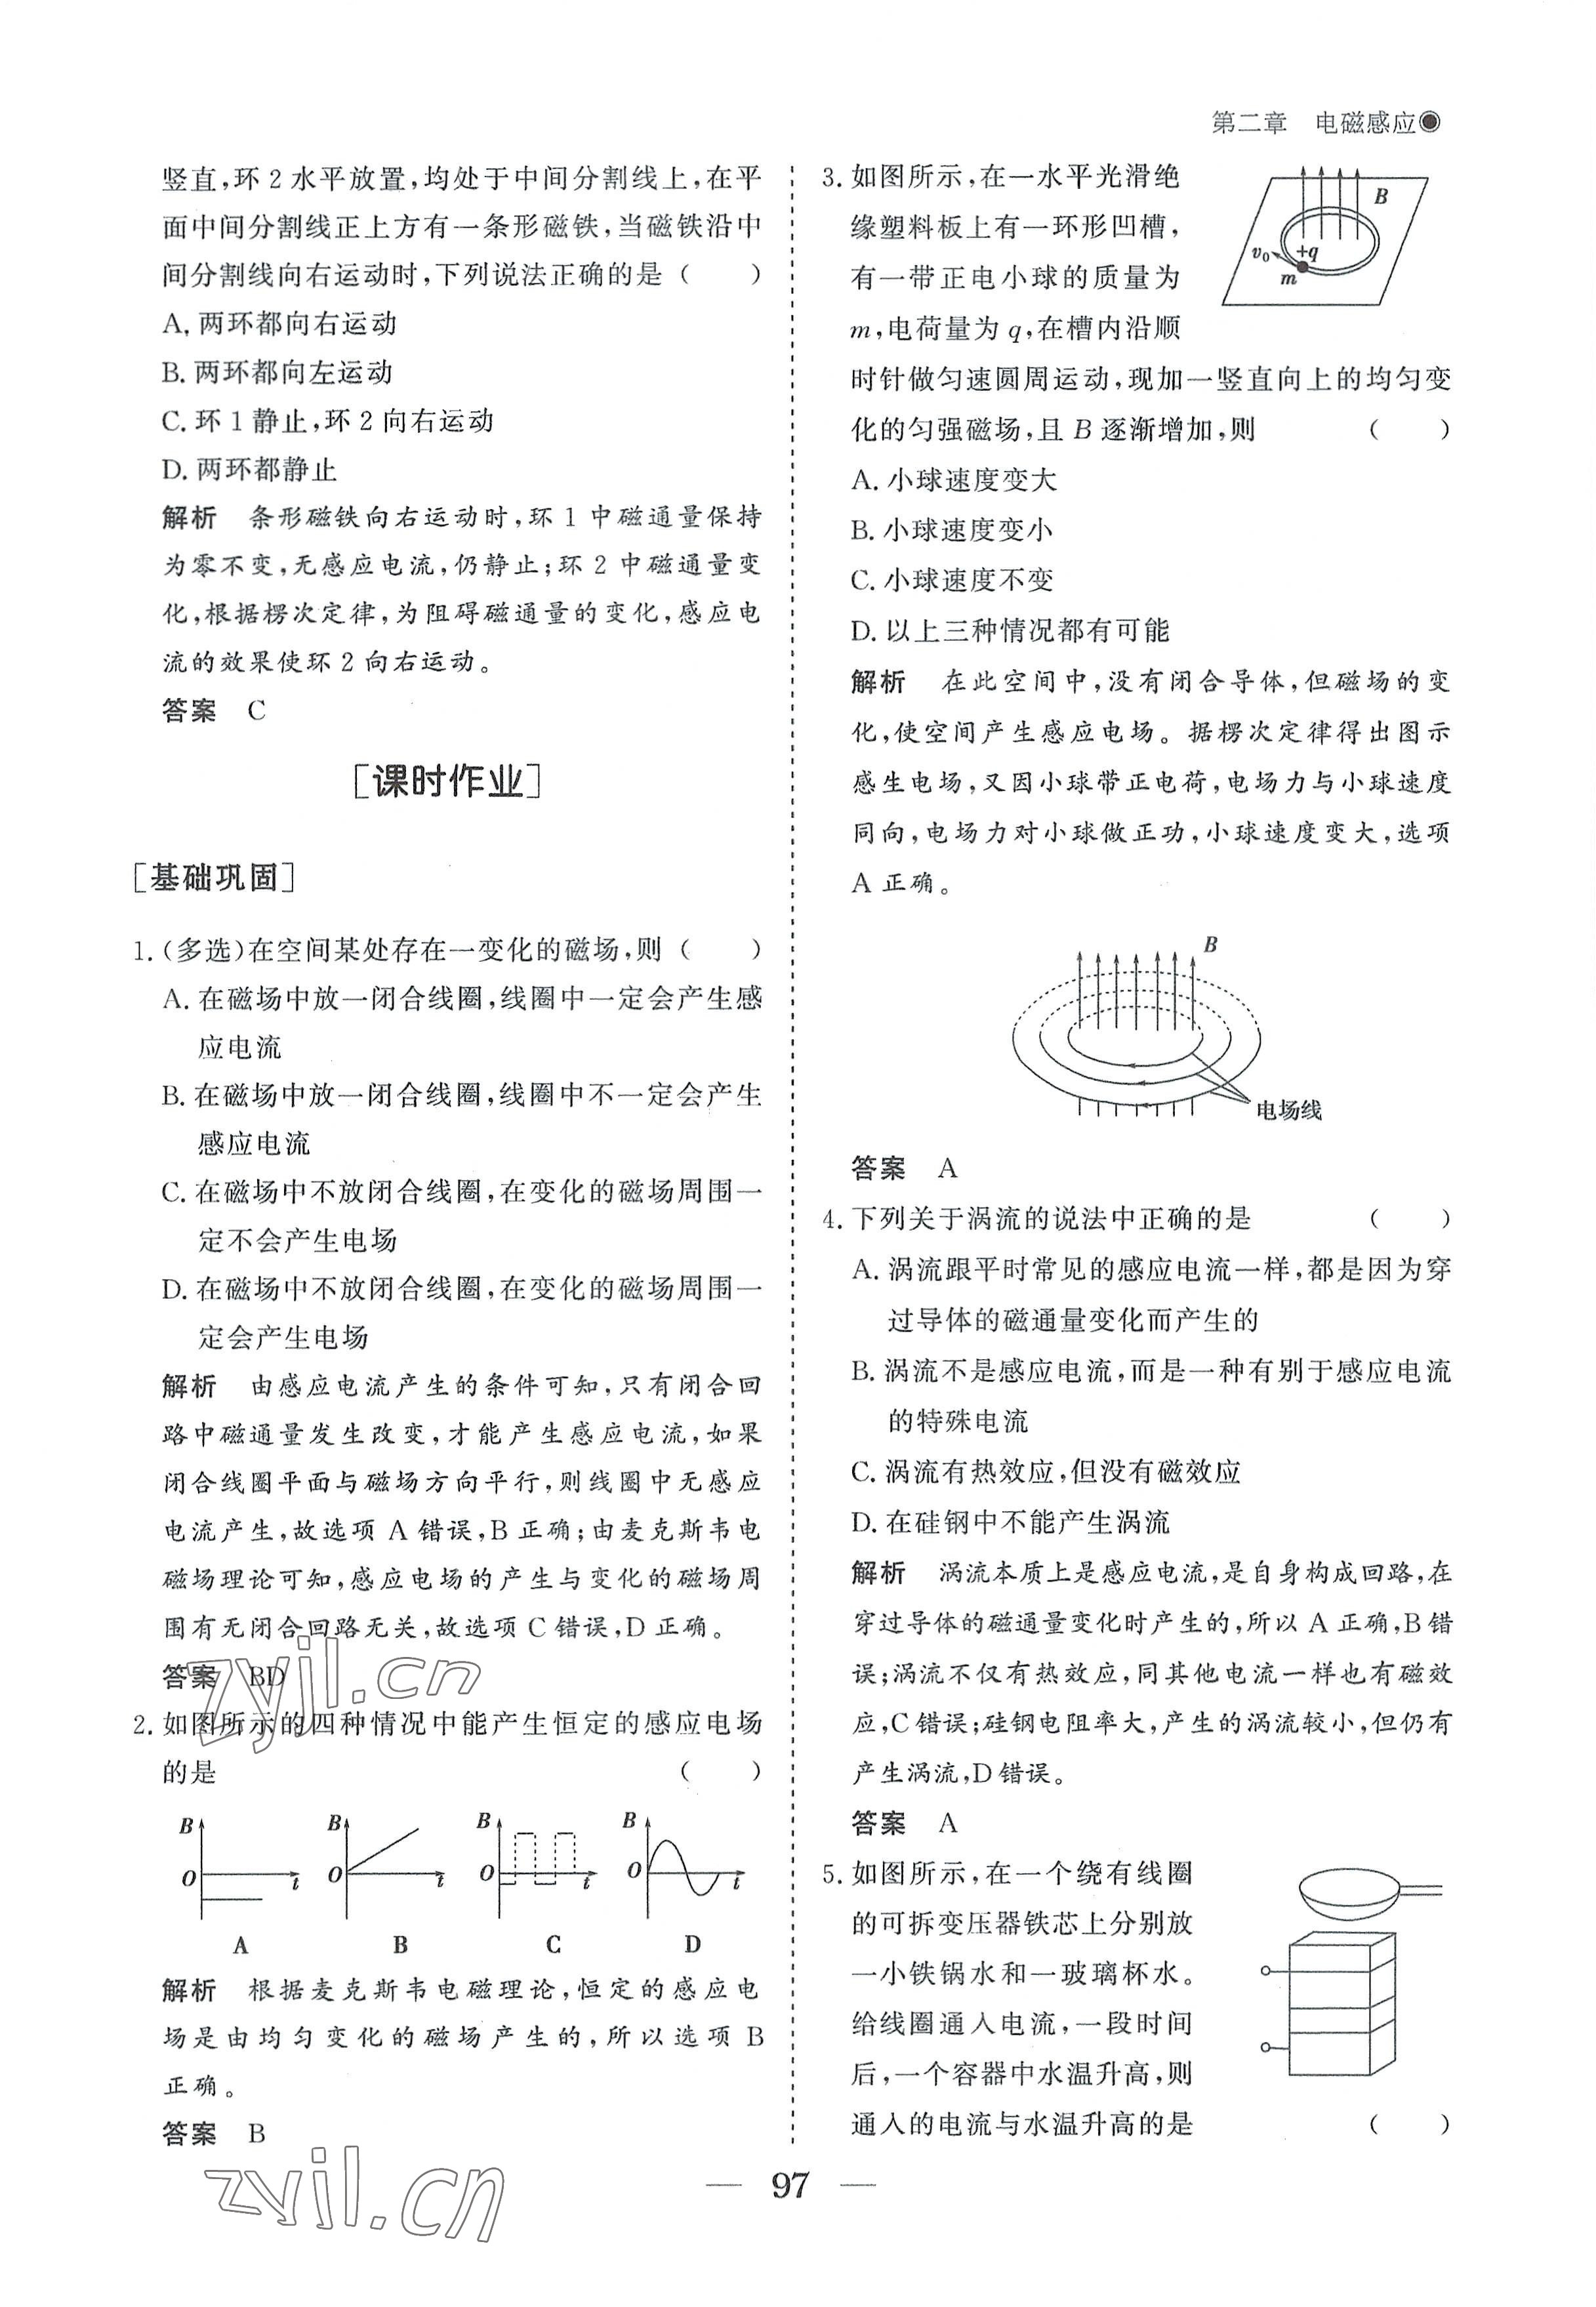 第二章 电磁感应
竖直,环 2 水平放置,均处于中间分割线上,在平
面中间分割线正上方有一条形磁铁,当磁铁沿中
间分割线向右运动时,下列说法正确的是 ( )
A. 两环都向右运动
B. 两环都向左运动
C. 环 1 静止,环 2 向右运动
D. 两环都静止
解析 条形磁铁向右运动时,环 1 中磁通量保持
为零不变,无感应电流,仍静止;环 2 中磁通量变
化,根据楞次定律,为阻碍磁通量的变化,感应电
流的效果使环 2 向右运动。
答案 C
[课时作业]
[基础巩固]
1. (多选)在空间某处存在一变化的磁场,则 ( )
A. 在磁场中放一闭合线圈,线圈中一定会产生感
应电流
B. 在磁场中放一闭合线圈,线圈中不一定会产生
感应电流
C. 在磁场中不放闭合线圈,在变化的磁场周围一
定不会产生电场
D. 在磁场中不放闭合线圈,在变化的磁场周围一
定会产生电场
解析 由感应电流产生的条件可知,只有闭合回
路中磁通量发生改变,才能产生感应电流,如果
闭合线圈平面与磁场方向平行,则线圈中无感应
电流产生,故选项 A 错误,B 正确;由麦克斯韦电
磁场理论可知,感应电场的产生与变化的磁场周
围有无闭合回路无关,故选项 C 错误,D 正确。
答案 BD
zyjl.cn
2. 如图所示的四种情况中能产生恒定的感应电场
的是 ( )
B O t A
B O t B
B O t C
B O t D
解析 根据麦克斯韦电磁理论,恒定的感应电
场是由均匀变化的磁场产生的,所以选项 B
正确。
答案 B
zyjl.cn
3. 如图所示,在一水平光滑绝
缘塑料板上有一环形凹槽,
有一带正电小球的质量为
m,电荷量为 q,在槽内沿顺
时针做匀速圆周运动,现加一竖直向上的均匀变
化的匀强磁场,且 B 逐渐增加,则 ( )
B
v0 +q
m
A. 小球速度变大
B. 小球速度变小
C. 小球速度不变
D. 以上三种情况都有可能
解析 在此空间中,没有闭合导体,但磁场的变
化,使空间产生感应电场。据楞次定律得出图示
感生电场,又因小球带正电荷,电场力与小球速度
同向,电场力对小球做正功,小球速度变大,选项
A 正确。
B
电场线
答案 A
4. 下列关于涡流的说法中正确的是 ( )
A. 涡流跟平时常见的感应电流一样,都是因为穿
过导体的磁通量变化而产生的
B. 涡流不是感应电流,而是一种有别于感应电流
的特殊电流
C. 涡流有热效应,但没有磁效应
D. 在硅钢中不能产生涡流
解析 涡流本质上是感应电流,是自身构成回路,在
穿过导体的磁通量变化时产生的,所以 A 正确,B 错
误;涡流不仅有热效应,同其他电流一样也有磁效
应,C 错误;硅钢电阻率大,产生的涡流较小,但仍有
产生涡流,D 错误。
答案 A
5. 如图所示,在一个绕有线圈
的可拆变压器铁芯上分别放
一小铁锅水和一玻璃杯水。
给线圈通入电流,一段时间
后,一个容器中水温升高,则
通入的电流与水温升高的是 ( )
— 97 —